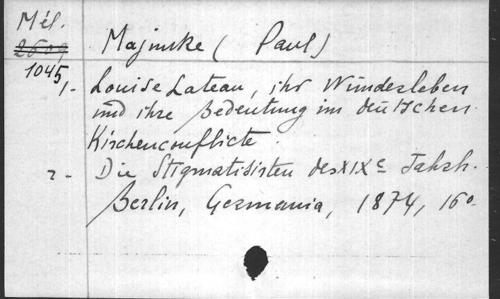 Mél.
2609
1045
Majunke (Paul)
1- Louise Lateau, ihr Wunderleben
und ihre Bedeutung im deutschen
Kirchenconflicte.
2- Die Stigmatisirten des XIXe Jahrh.
Berlin, Germania, 1874, 16o